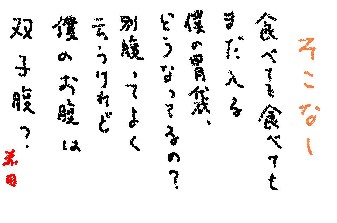 そこなし
食べても食べても
まだ入る
僕の胃袋、
どうなってるの？
別腹ってよく
云うけれど
僕のお腹は
双子腹？